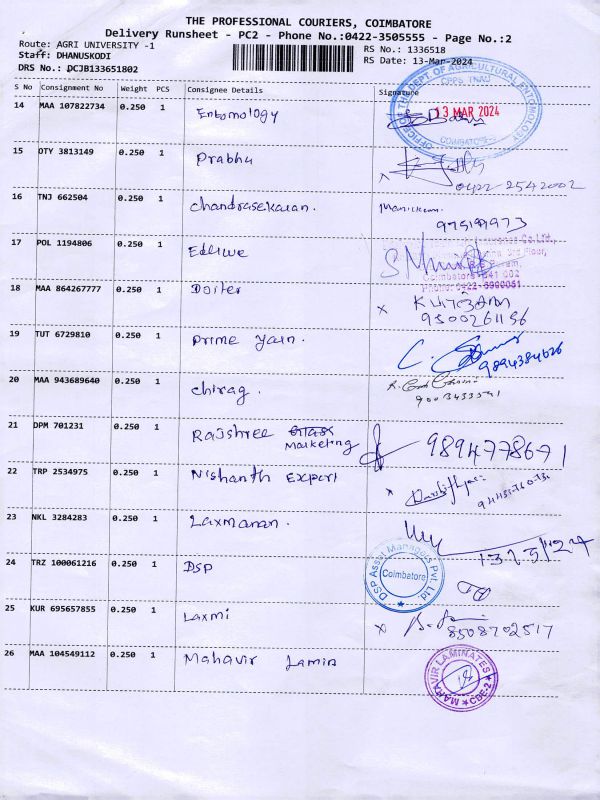 THE PROFESSIONAL COURIERS, COIMBATORE
Delivery Runsheet - PC2 - Phone No.:0422-3505555 - Page No.:2
Route: AGRI UNIVERSITY -1
RS No.: 1336518
Staff: DHANUSKODI
RS Date: 13-Mar-2024
DRS No.: DCJB133651802
S No Consignment No Weight PCS Consignee Details Signature
OFFICE OF THE DEPT OF AGRICULTURAL ENTOMOLOGY
CPPS TNAU
13 MAR 2024
COIMBATORE
14 MAA 107822734 0.250 1 Entomology
15 OTY 3813149 0.250 1 Prabhu
0422 2542002
16 TNJ 662504 0.250 1 Chandrasekaran. Manickam
17 POL 1194806 0.250 1
3rd Floor,
Coimbatore 641 002
18 MAA 864267777 0.250 1
9500261156
19 TUT 6729810 0.250 1 Prime yarn.
9894384626
20 MAA 943689640 0.250 1 Chirag.
21 DPM 701231 0.250 1 Rajshree
Marketing
9894778671
22 TRP 2534975 0.250 1 Nishanth Export
23 NKL 3284283 0.250 1 Laxmanan.
13/3/24
24 TRZ 100061216 0.250 1 DSP
DSP Asset Managers Pvt. Ltd
Coimbatore
25 KUR 695657855 0.250 1 Laxmi
8508702517
26 MAA 104549112 0.250 1 Mahavir Lamin
MAHAVIR LAMINATES
CBE-2